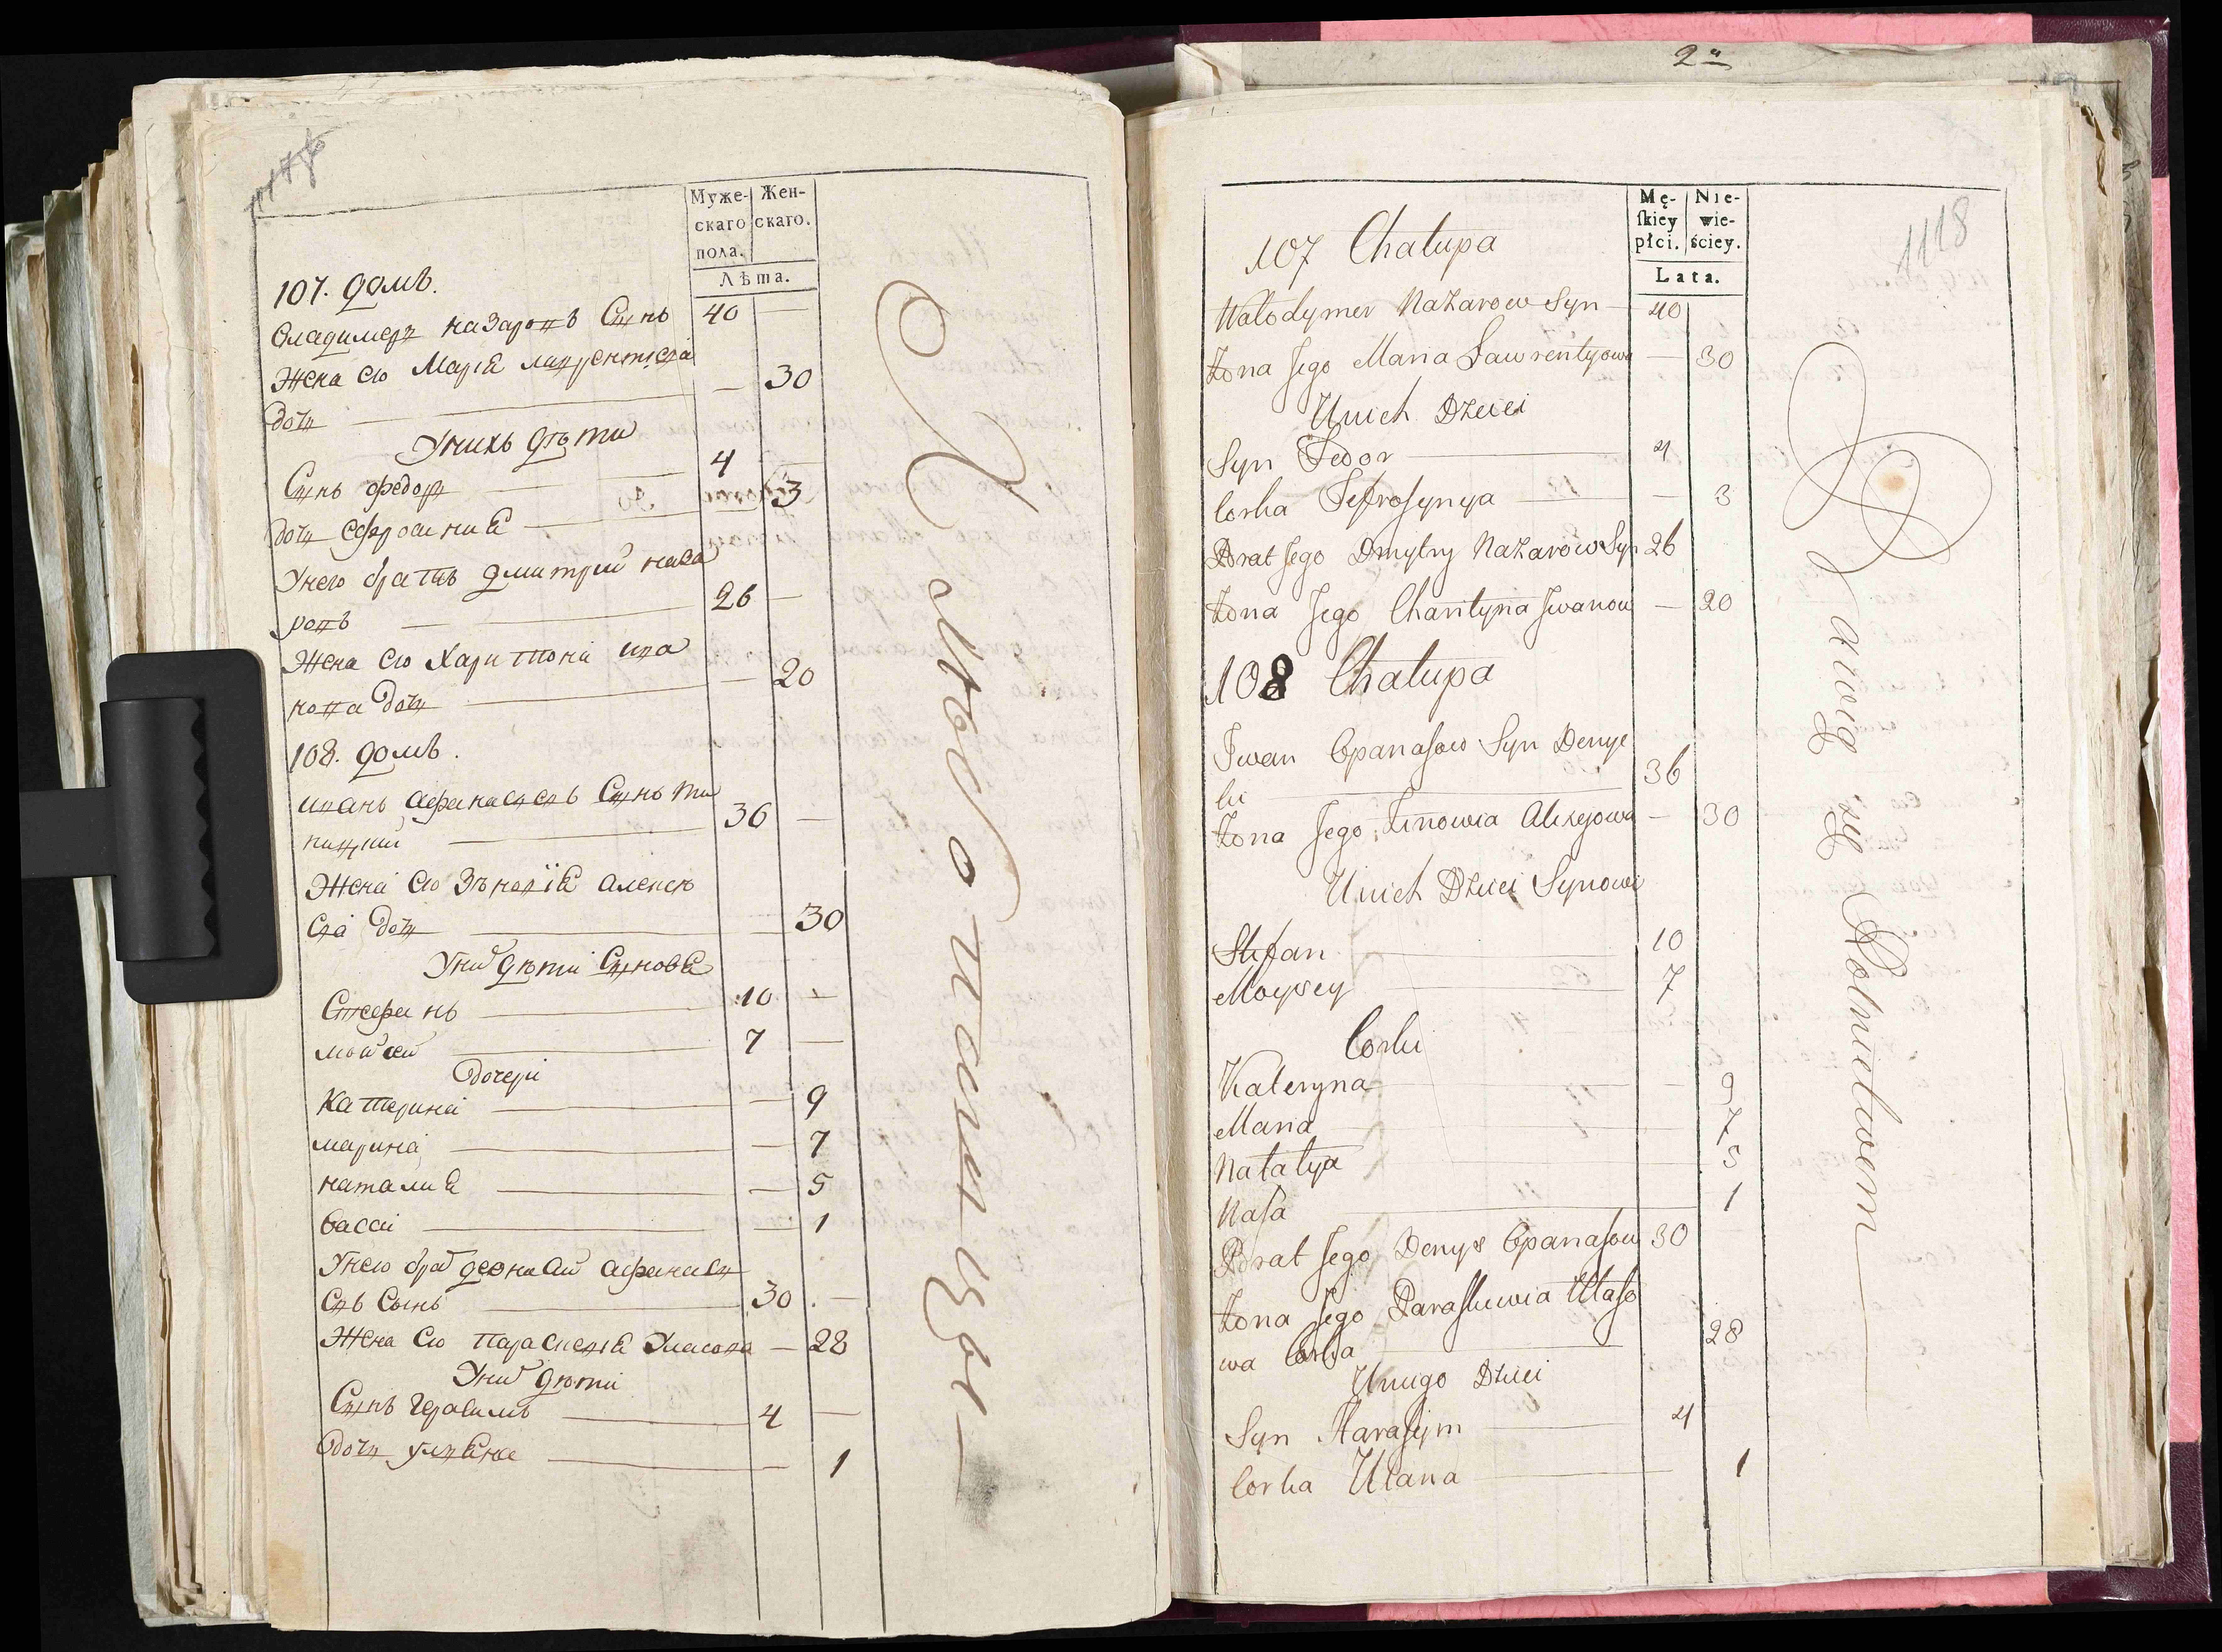 Муже-
скаго
пола.
Жен-
скаго.
Лѣта.
107. домъ.
Владимеръ назаровъ Сынъ 40 —
Жена его Марія лаврентіева
дочь — — 30
Унихъ дѣти
Сынъ федоръ — 4 —
дочь ефросинія — 3
Унего братъ дмитрий наза
ровъ — 26 —
Жена его Харитоні ива
нова дочь — — 20
108. домъ.
иванъ афанасьевъ Сынъ
36 —
Жена его Зѣновія алексѣ
ева дочь — — 30
Уних дѣти Сыновя
Стефанъ — 10 —
мойсей — 7 —
дочери
Катерина — — 9
марина — — 7
наталия — — 5
васса — — 1
Унего брат афанась
евъ Сынъ — 30 —
Жена его параскевія Уласова — 28
Уних дѣти
Сынъ герасимъ — 4 —
дочь уляна — — 1
Хлѣбопашцы
2
Mę-
ſkiey
płci.
Nie-
wie-
ściey.
Lata.
1118
107 Chałupa
Wołodymer Nazarow Syn — 40
Żona Jego Maria Lawrentyowa — 30
U nich Dzieci
Syn Fedor — 4
Corka Jefrosynya — — 3
Brat Jego Dmytry Nazarow Syn 26
Żona Jego Charityna Iwanow — 20
108 Chałupa
Iwan Opanasow Syn Denye
ki — 36
Żona Jego Zinowia Alexejowa — 30
U nich Dzieci Synowie
Stefan — 10
Moysey — 7
Corki
Kateryna — — 9
Maria — 7
Natalya — 5
Wasa — 1
Brat Jego Denys Opanasow 30
Żona Jego Paraskiewia Ułaso
wa Corka — 28
U niego Dzieci
Syn Harasym — 4
Corka Ulana — 1
Bawią się Rolnictwem